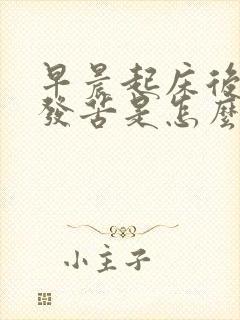 早晨起床後
發苦是怎麼
小主子